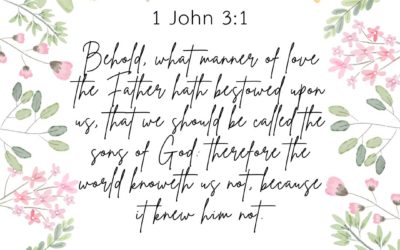 1 John 3:1
Behold, what manner of love
the Father hath bestowed upon
us, that we should be called the
sons of God: therefore the
world knoweth us not, because
it knew him not.